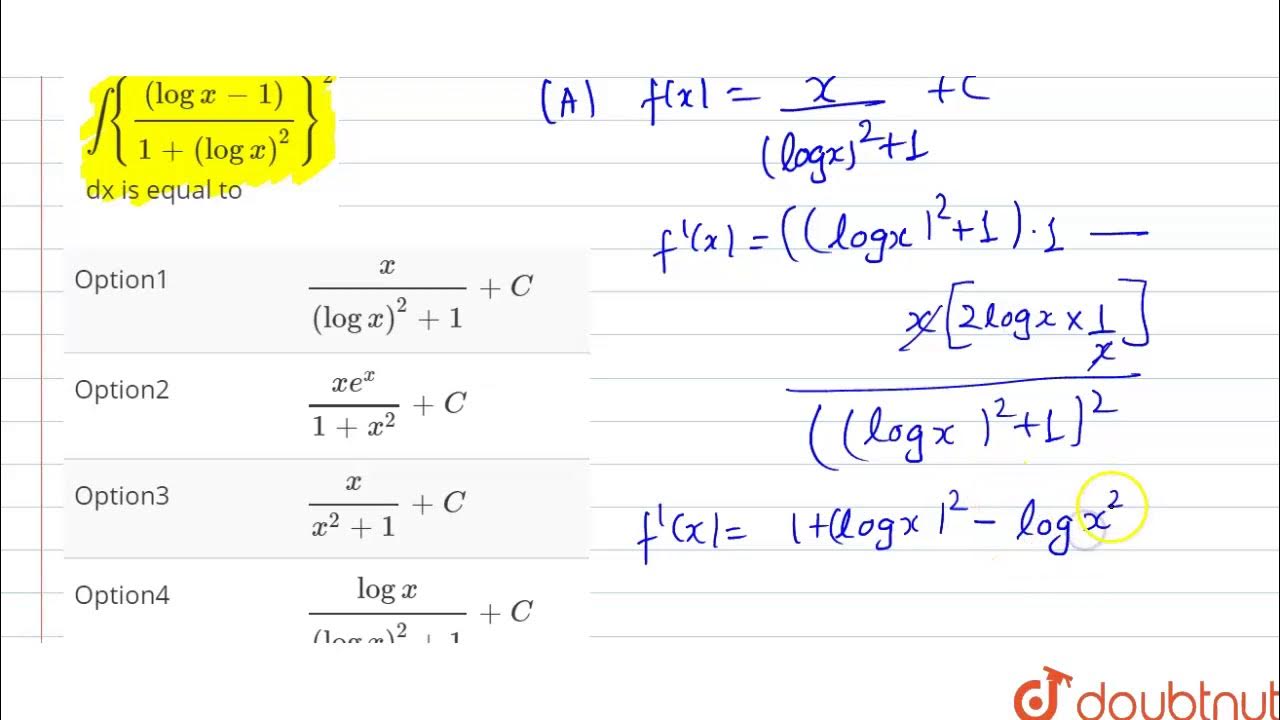 ∫{ (log x − 1) / 1 + (log x)² }²
dx is equal to
Option1 x / (log x)² + 1 + C
Option2 xeˣ / 1 + x² + C
Option3 x / x² + 1 + C
Option4 log x / (log x)² + 1 + C
(A) f(x) = x / (logx)² + 1 + C
f'(x) = ((logx)² + 1) · 1 —
x [2logx × 1/x]
((logx)² + 1)²
f'(x) = 1 + (logx)² − logx²
doubtnut